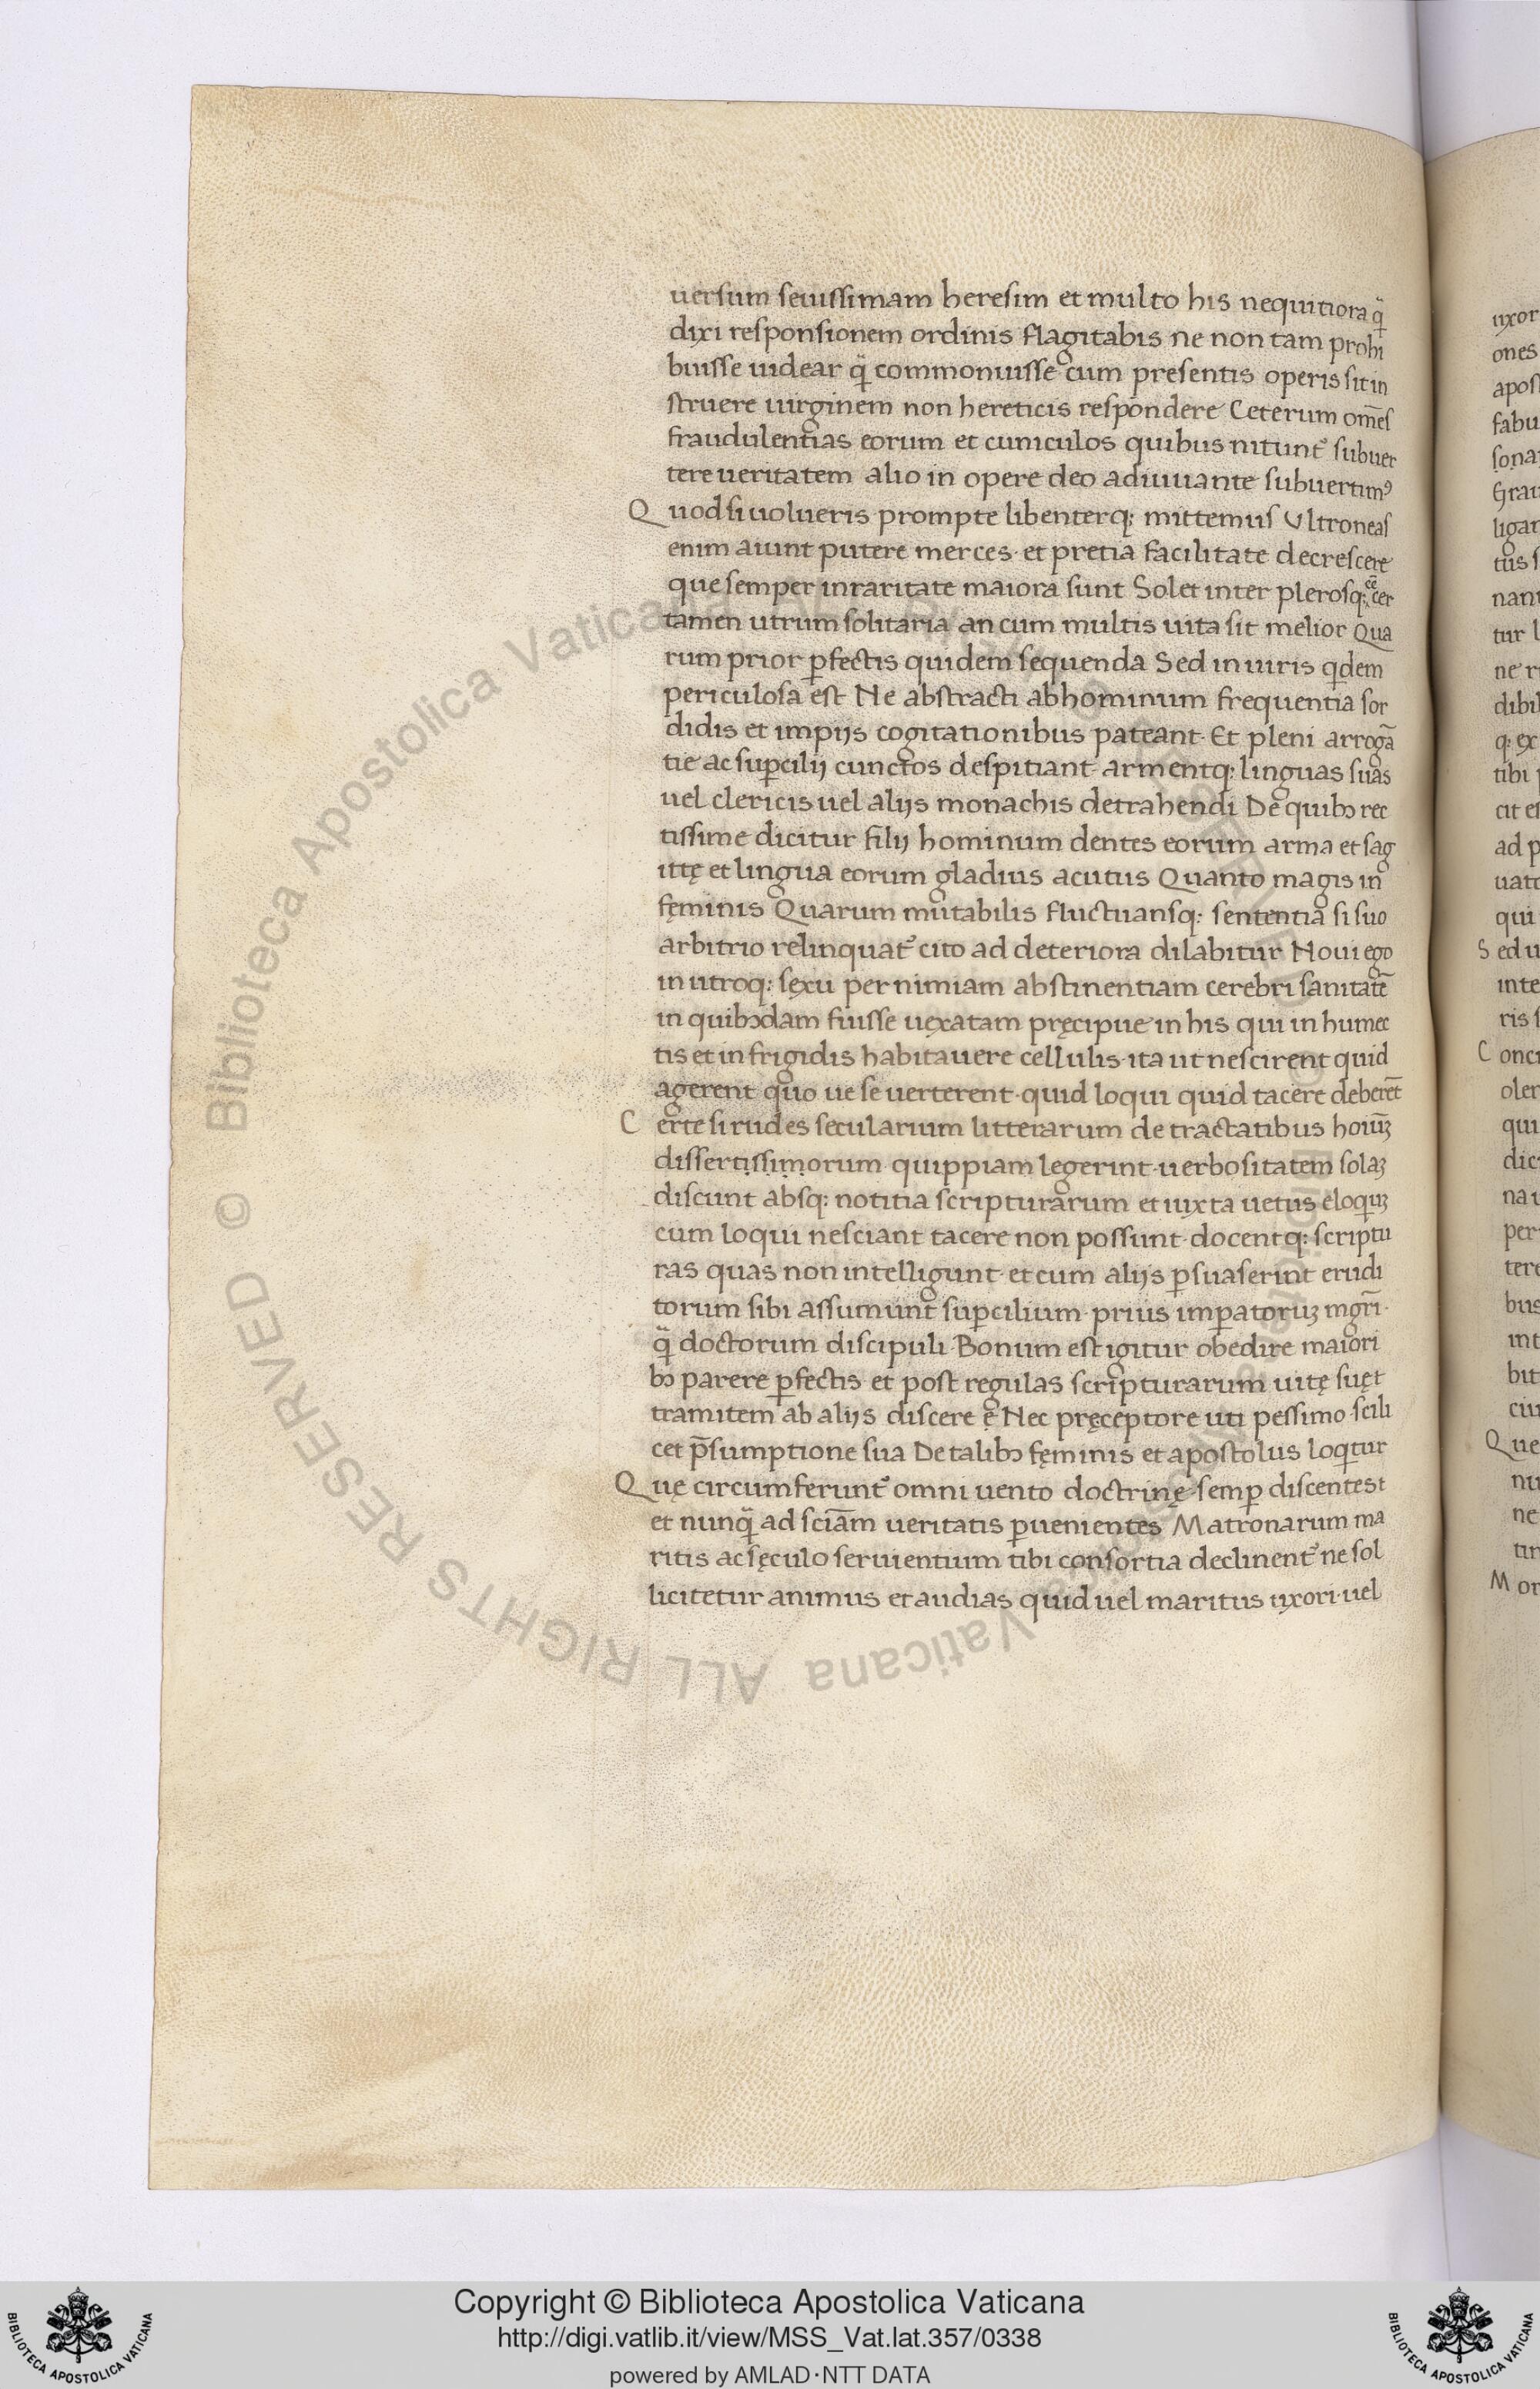 uersum seuissimam heresim et multo his nequitiora q̃
dixi responsionem ordinis flagitabis ne non tam prohi
buisse uidear q̃ commonuisse cum presentis operis sit in
struere uirginem non hereticis respondere Ceterum om̄es
fraudulentias eorum et cuniculos quibus nitunt᷑ subuer
tere ueritatem alio in opere deo adiuuante subuertimꝰ
Quod si uolueris prompte libenterq; mittemus Vltroneas
enim aiunt putere merces· et pretia facilitate decrescere
que semper in raritate maiora sunt Solet inter plerosq; eē cer
tamen utrum solitaria an cum multis uita sit melior Qua
rum prior ꝑfectis quidem sequenda Sed in uiris qdem
periculosa est Ne abstracti ab hominum frequentia sor
didis et impijs cogitationibus pateant· Et pleni arrogā
tie ac suꝑcilij cunctos despitiant armentq; linguas suas
uel clericis uel alijs monachis detrahendi De quibꝫ rec
tissime dicitur filij hominum dentes eorum arma et sag
ittę et lingua eorum gladius acutus Quanto magis in
feminis Quarum mutabilis fluctuansq; sententia si suo
arbitrio relinquat᷑ cito ad deteriora dilabitur Noui ego
in utroq; sexu per nimiam abstinentiam cerebri sanitatē
in quibꝫdam fuisse uexatam pręcipue in his qui in humec
tis et in frigidis habitauere cellulis· ita ut nescirent quid
agerent quo ue se uerterent· quid loqui quid tacere deberēt
Certe si rudes secularium litterarum de tractatibus hoiūꝫ
dissertissimorum quippiam legerint· uerbositatem solaꝫ
discunt absq; notitia scripturarum et iuxta uetus eloquꝫ
cum loqui nesciant tacere non possunt· docentq; scriptu
ras quas non intelligunt· et cum alijs ꝑsuaserint erudi
torum sibi assumunt suꝑcilium· prius imꝑatoruꝫ mgr̄i·
q̃ doctorum discipuli· Bonum est igitur obedire maiori
bꝫ parere ꝑfectis· et post regulas scripturarum uitę suęt
tramitem ab alijs discere ē Nec pręceptore uti pessimo scili
cet p̄sumptione sua De talibꝫ fęminis et apostolus loqtur
Quę circumferunt᷑ omni uento doctrinę· semꝑ discentest
et nunq̃ ad sciām ueritatis ꝑuenientes Matronarum ma
ritis ac sęculo seruientium tibi consortia declinent᷑ ne sol
licitetur animus et audias quid uel maritus uxori· uel
uxor
ones
apos
fabu
sona
Grau
ligat
tus s
nam
tur l
ne r
dibil
q; ex
tibi
cit e
ad p
uatc
qui
Sed u
inte
ris s
Conci
oler
qui
dic
na u
per
tere
bus
int
bit
ciu
Que
nu
ne
tin
Mor
Biblioteca Apostolica Vaticana ALL RIGHTS RESERVED ©
Copyright © Biblioteca Apostolica Vaticana
http://digi.vatlib.it/view/MSS_Vat.lat.357/0338
powered by AMLAD·NTT DATA
BIBLIOTECA APOSTOLICA VATICANA
BIBLIOTECA APOSTOLICA VATICANA